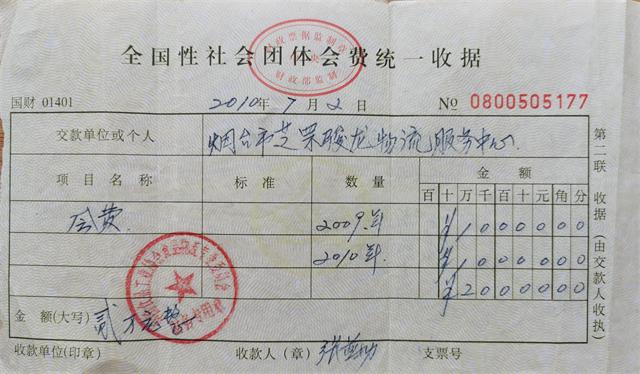 全国性社会团体会费统一收据
财政部监制
国财 01401
2010年 7月 2日
№ 0800505177
交款单位或个人 烟台市芝罘骏龙物流服务中心
项目名称 标准 数量 金额
百 十 万 千 百 十 元 角 分
会费 2009年 ¥ 1 0 0 0 0 0 0
2010年 ¥ 1 0 0 0 0 0 0
¥ 2 0 0 0 0 0 0
金 额(大写) 贰万元整
收款单位(印章) 收款人(章) 支票号
第二联 收据(由交款人收执)